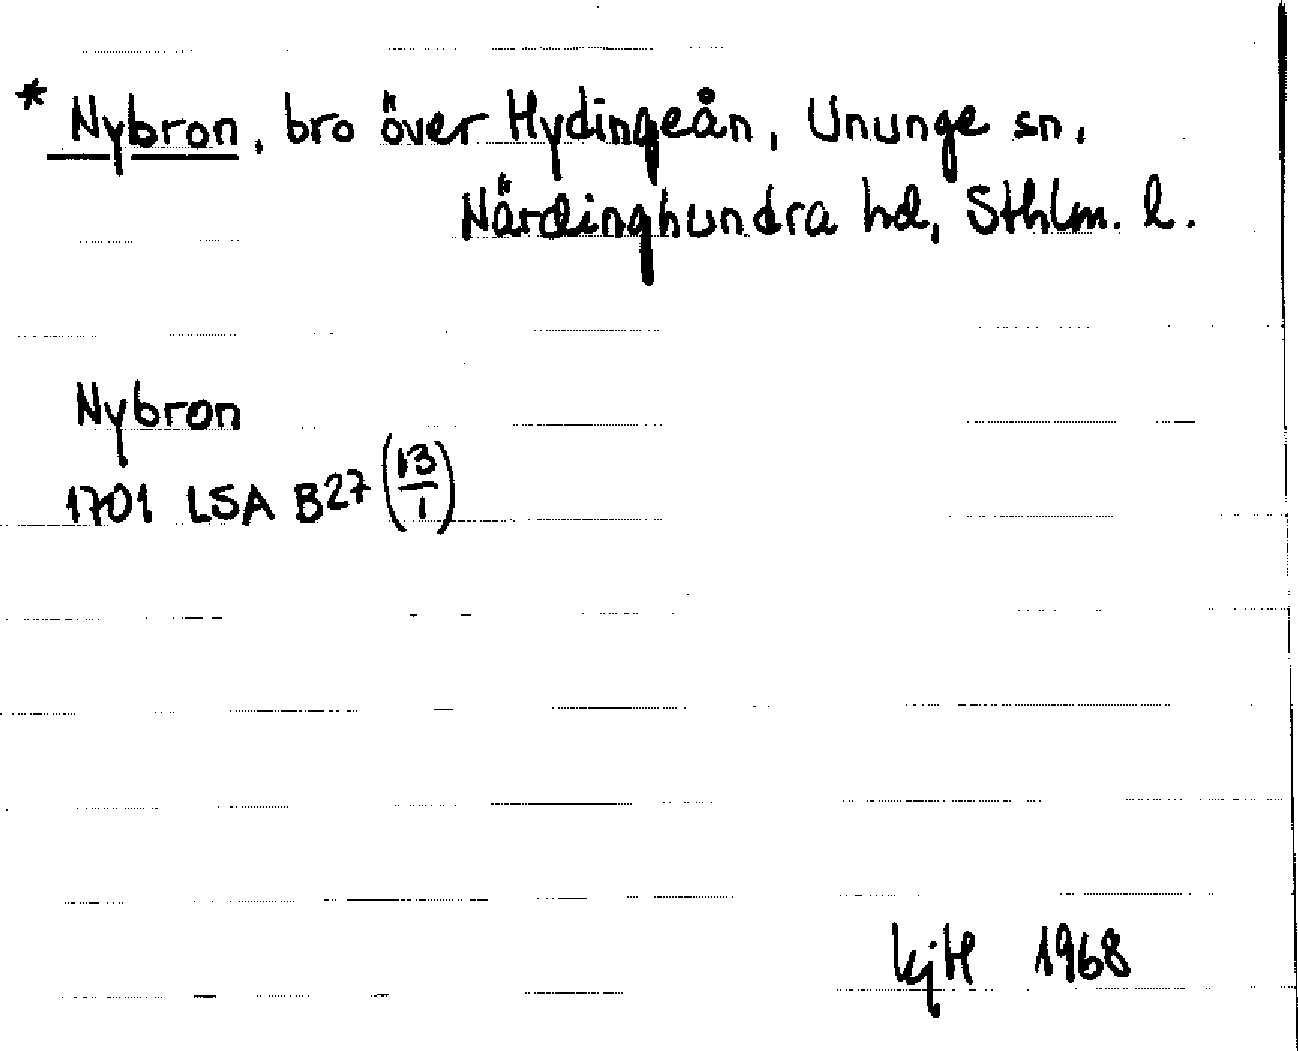 * Nybron, bro över Hydingeån, Ununge sn,
Närdinghundra hd, Sthlm. l.
Nybron
1701 LSA B27 (13/1)
kjH 1968